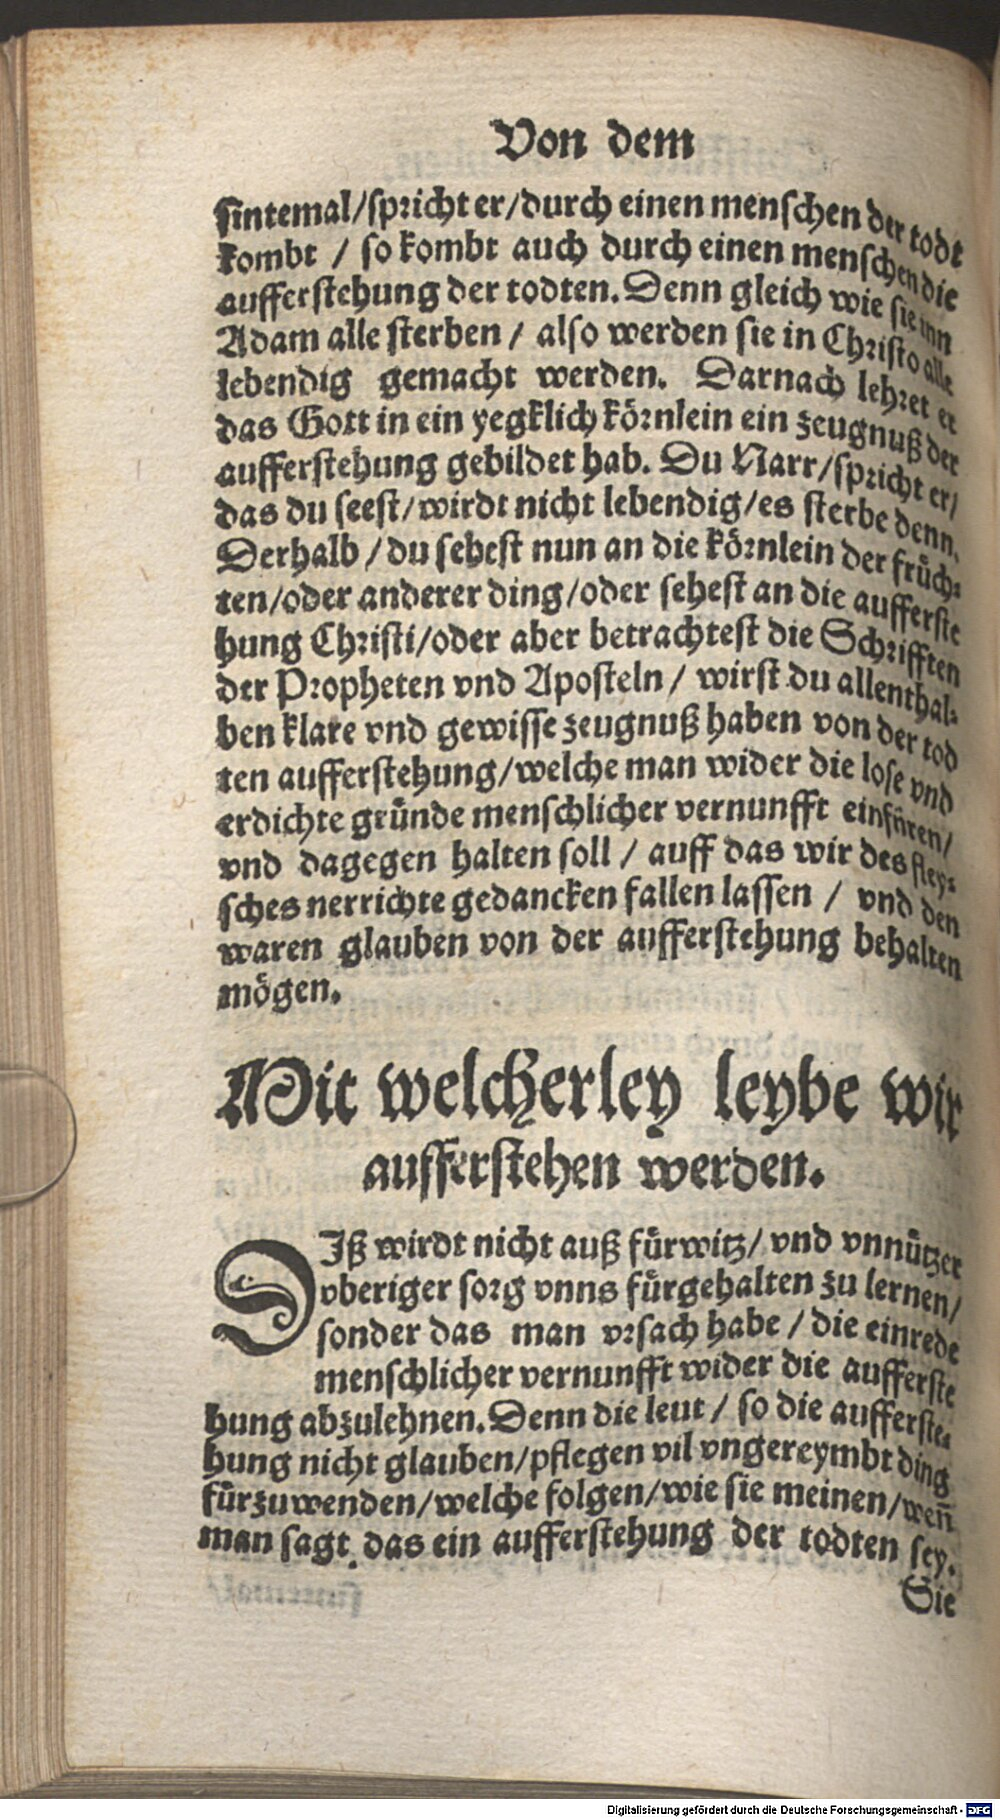 Von dem
sintemal/spricht er/durch einen menschen der todt
kombt / so kombt auch durch einen menschen die
aufferstehung der todten. Denn gleich wie sie inn
Adam alle sterben / also werden sie in Christo alle
lebendig gemacht werden. Darnach lehret er
das Gott in ein yegklich körnlein ein zeugnuß der
aufferstehung gebildet hab. Du Narr/spricht er/
das du seest/wirdt nicht lebendig/es sterbe denn.
Derhalb / du sehest nun an die körnlein der früch-
ten/oder anderer ding/oder sehest an die aufferste
hung Christi/oder aber betrachtest die Schrifften
der Propheten vnd Aposteln / wirst du allenthal-
ben klare vnd gewisse zeugnuß haben von der tod
ten aufferstehung/welche man wider die lose vnd
erdichte gründe menschlicher vernunfft einfüren/
vnd dagegen halten soll / auff das wir des fley-
sches nerrichte gedancken fallen lassen / vnd den
waren glauben von der aufferstehung behalten
mögen.
Mit welcherley leybe wir
aufferstehen werden.
DIß wirdt nicht auß fürwitz/ vnd vnnützer
vberiger sorg vnns fürgehalten zu lernen/
sonder das man vrsach habe / die einrede
menschlicher vernunfft wider die aufferste
hung abzulehnen. Denn die leut / so die aufferste-
hung nicht glauben/pflegen vil vngereymbt ding
fürzuwenden/welche folgen/wie sie meinen/weñ
man sagt das ein aufferstehung der todten sey.
Sie
Digitalisierung gefördert durch die Deutsche Forschungsgemeinschaft - DFG